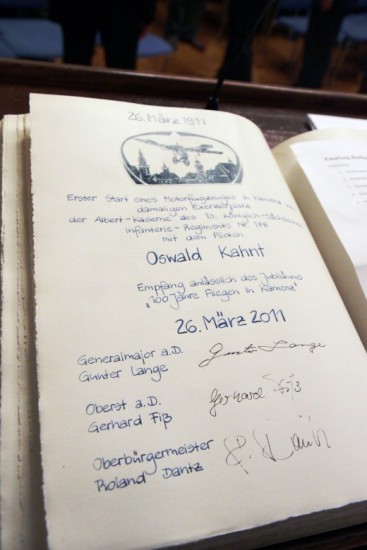 26. März 1911
Erster Start eines Motorflugzeuges in Kamenz am
damaligen Exerzierplatz
der Albert-Kaserne des 13. Königlich-Sächsischen
Infanterie-Regiments Nr. 178
mit dem Piloten
Oswald Kahnt
Empfang anlässlich des Jubiläums
„100 Jahre Fliegen in Kamenz"
26. März 2011
Generalmajor a.D.
Günter Lange
Oberst a.D.
Gerhard Fiß
Gerhard Fiß
Oberbürgermeister
Roland Dantz